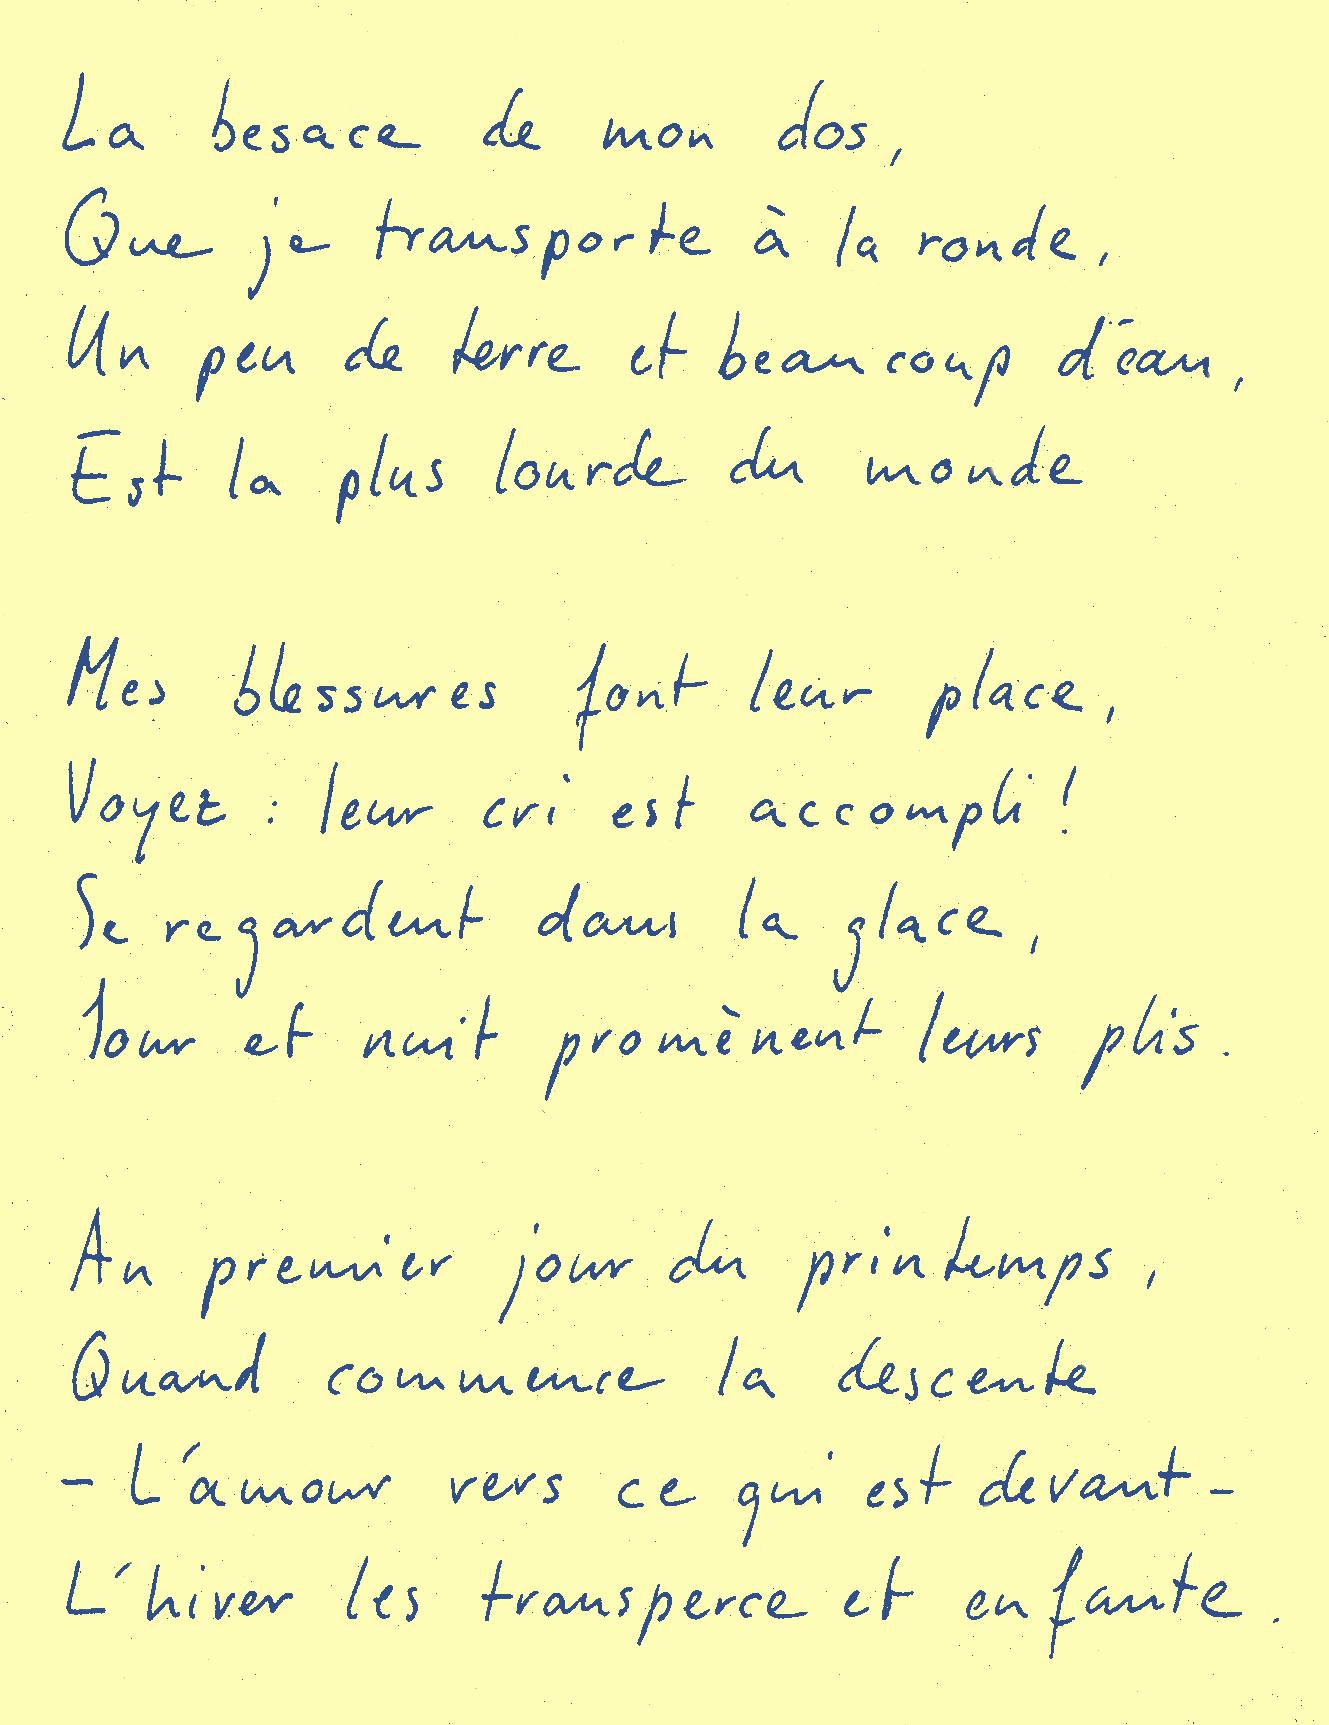 La besace de mon dos,
Que je transporte à la ronde,
Un peu de terre et beaucoup d'eau,
Est la plus lourde du monde
Mes blessures font leur place,
Voyez : leur cri est accompli !
Se regardent dans la glace,
Jour et nuit promènent leurs plis.
Au premier jour du printemps,
Quand commence la descente
- L'amour vers ce qui est devant -
L'hiver les transperce et enfante.